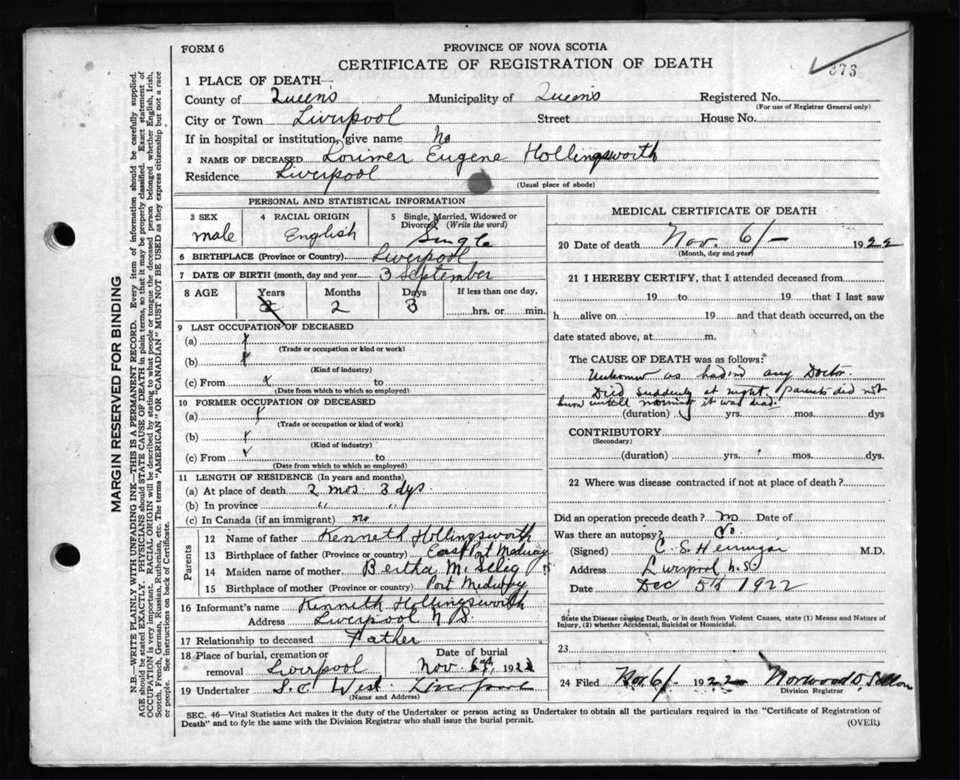 FORM 6
PROVINCE OF NOVA SCOTIA
CERTIFICATE OF REGISTRATION OF DEATH
373
1 PLACE OF DEATH
County of Queens Municipality of Queens Registered No.
(For use of Registrar General only)
City or Town Liverpool Street House No.
If in hospital or institution, give name No
2 NAME OF DECEASED Lorimer Eugene Hollingsworth
Residence Liverpool
(Usual place of abode)
PERSONAL AND STATISTICAL INFORMATION
3 SEX 4 RACIAL ORIGIN 5 Single, Married, Widowed or Divorced (Write the word)
male English Single
6 BIRTHPLACE (Province or Country) Liverpool
7 DATE OF BIRTH (month, day and year 3 September
8 AGE Years Months Days If less than one day,
2 3 hrs. or min.
9 LAST OCCUPATION OF DECEASED
(a)
(Trade or occupation or kind or work)
(b)
(Kind of industry)
(c) From to
(Date from which to which so employed)
10 FORMER OCCUPATION OF DECEASED
(a)
(Trade or occupation or kind of work)
(b)
(Kind of industry)
(c) From to
(Date from which to which so employed)
11 LENGTH OF RESIDENCE (In years and months)
(a) At place of death 2 mos 3 dys.
(b) In province " "
(c) In Canada (if an immigrant) no
Parents
12 Name of father Kenneth Hollingsworth
13 Birthplace of father (Province or country) East Port Medway
14 Maiden name of mother Bertha M. Selig
15 Birthplace of mother (Province or country) Port Medway
16 Informant's name Kenneth Hollingsworth
Address Liverpool N S
17 Relationship to deceased Father
18 Place of burial, cremation or removal Liverpool
Date of burial Nov 1922
19 Undertaker S. C. West Liverpool
(Name and Address)
MEDICAL CERTIFICATE OF DEATH
20 Date of death Nov. 6/- 1922
(Month, day and year)
21 I HEREBY CERTIFY, that I attended deceased from
19 to 19 that I last saw
h alive on 19 and that death occurred, on the
date stated above, at m.
The CAUSE OF DEATH was as follows:
Unknown as had no any Doctor.
Died suddenly at night, parents did not
know untill morning it was dead
(duration) yrs. mos. dys
CONTRIBUTORY
(Secondary)
(duration) yrs. mos. dys.
22 Where was disease contracted if not at place of death?
Did an operation precede death? no Date of
Was there an autopsy? No.
(Signed) C. S. M.D.
Address Liverpool N.S.
Date Dec 5th 1922
State the Disease causing Death, or in death from Violent Causes, state (1) Means and Nature of
Injury, (2) whether Accidental, Suicidal or Homicidal.
23
24 Filed Nov 6/- 1922 Norwood
Division Registrar
SEC. 46—Vital Statistics Act makes it the duty of the Undertaker or person acting as Undertaker to obtain all the particulars required in the "Certificate of Registration of
Death" and to fyle the same with the Division Registrar who shall issue the burial permit.
(OVER)
MARGIN RESERVED FOR BINDING
N.B.—WRITE PLAINLY WITH UNFADING INK—THIS IS A PERMANENT RECORD. Every item of information should be carefully supplied.
AGE should be stated EXACTLY. PHYSICIANS should STATE CAUSE OF DEATH in plain terms, so that it may be properly classified. Exact statement of
OCCUPATION is very important. RACIAL ORIGIN will be described by stating to what people or tongue the deceased person belonged whether English, Irish,
Scotch, French, German, Russian, Ruthenian, etc. The terms "AMERICAN" OR "CANADIAN" MUST NOT BE USED as they express citizenship but not a race
or people. See instructions on back of Certificate.